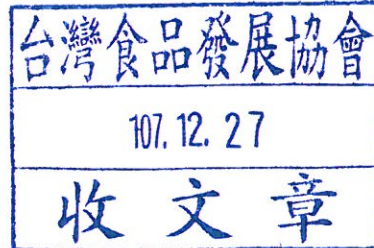 台灣食品發展協會
107.12.27
收文章